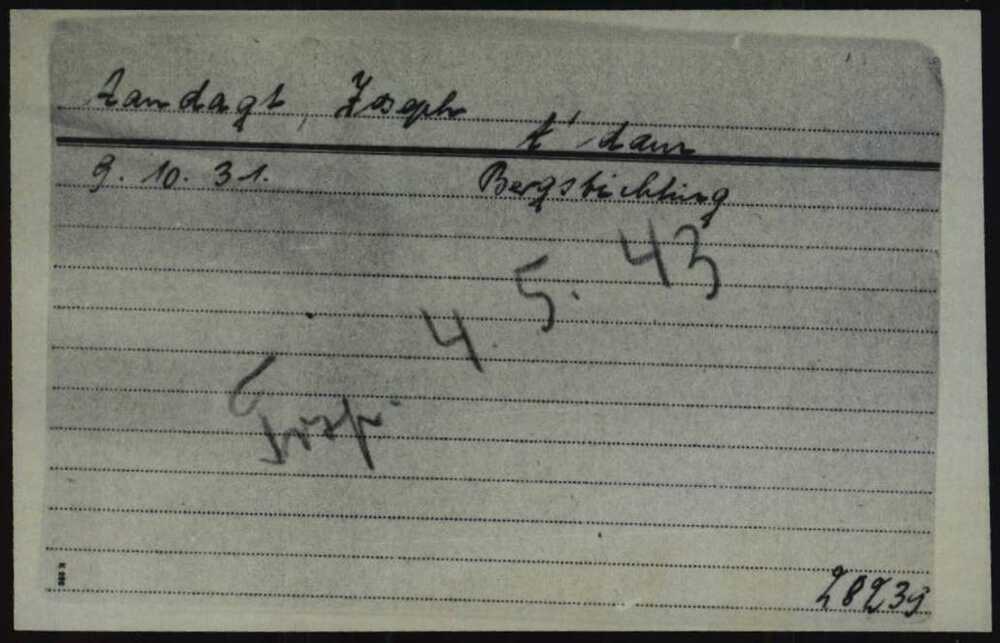 Aandagt, Joseph
A'dam
9. 10. 31. Bergstichting
Trsp. 4. 5. 43
28239